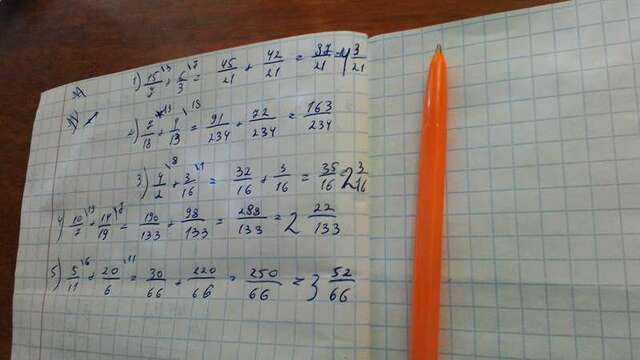 1) 15/7 \3 + 6/3 \7 = 45/21 + 42/21 = 87/21 = 4 3/21
2) 7/18 \13 + 4/13 \18 = 91/234 + 72/234 = 163/234
3) 4/2 \8 + 3/16 \1 = 32/16 + 3/16 = 35/16 2 3/16
4) 10/7 \19 + 14/19 \7 = 190/133 + 98/133 = 288/133 = 2 22/133
5) 5/11 \6 + 20/6 \11 = 30/66 + 220/66 = 250/66 = 3 52/66